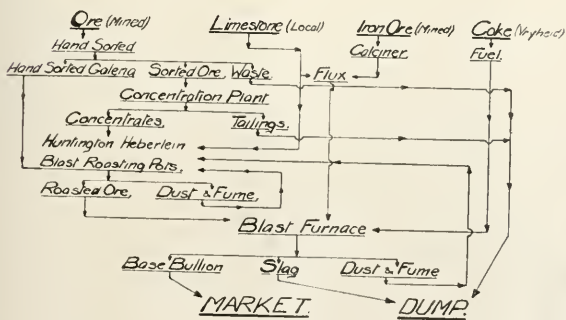 Ore (Mined) Limestone (Local) Iron Ore (Mined) Coke (Vryheid)
Hand Sorted Calciner Fuel.
Hand Sorted Galena Sorted Ore, Waste Flux
Concentration Plant
Concentrates, Tailings,
Huntington Heberlein
Blast Roasting Pots,
Roasted Ore, Dust & Fume,
Blast Furnace
Base Bullion Slag Dust & Fume
MARKET. DUMP.